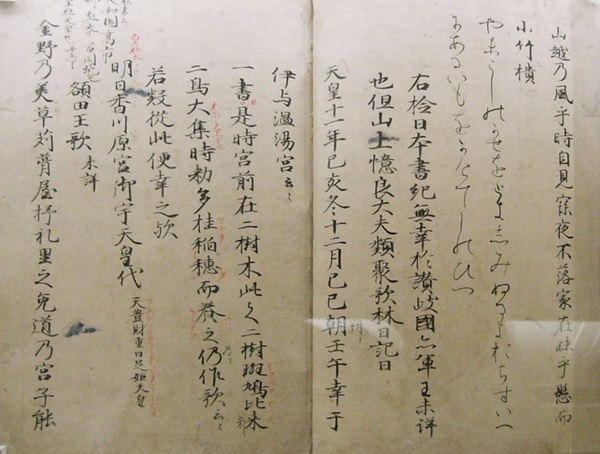 山越乃風乎時自見寐夜不落家在妹乎懸而
小竹樻
やまこしのかせをときしみぬるよおちすいへ
にあるいもをかけてしのひつ
右檢日本書紀無幸於讃岐國亦軍王未詳
也但山上憶良大夫類聚歌林曰記曰
天皇十一年己亥冬十二月己巳朔壬午幸于
伊与温湯宮云々
一書是時宮前在二樹木此之二樹斑鳩比米
二鳥大集時勅多桂稲穂而養之仍作歌云々
若疑從此便幸之歟
明日香川原宮御宇天皇代 天豊財重日足姫天皇
額田王歌 未詳
金野乃美草苅葺屋杼礼里之兎道乃宮子能